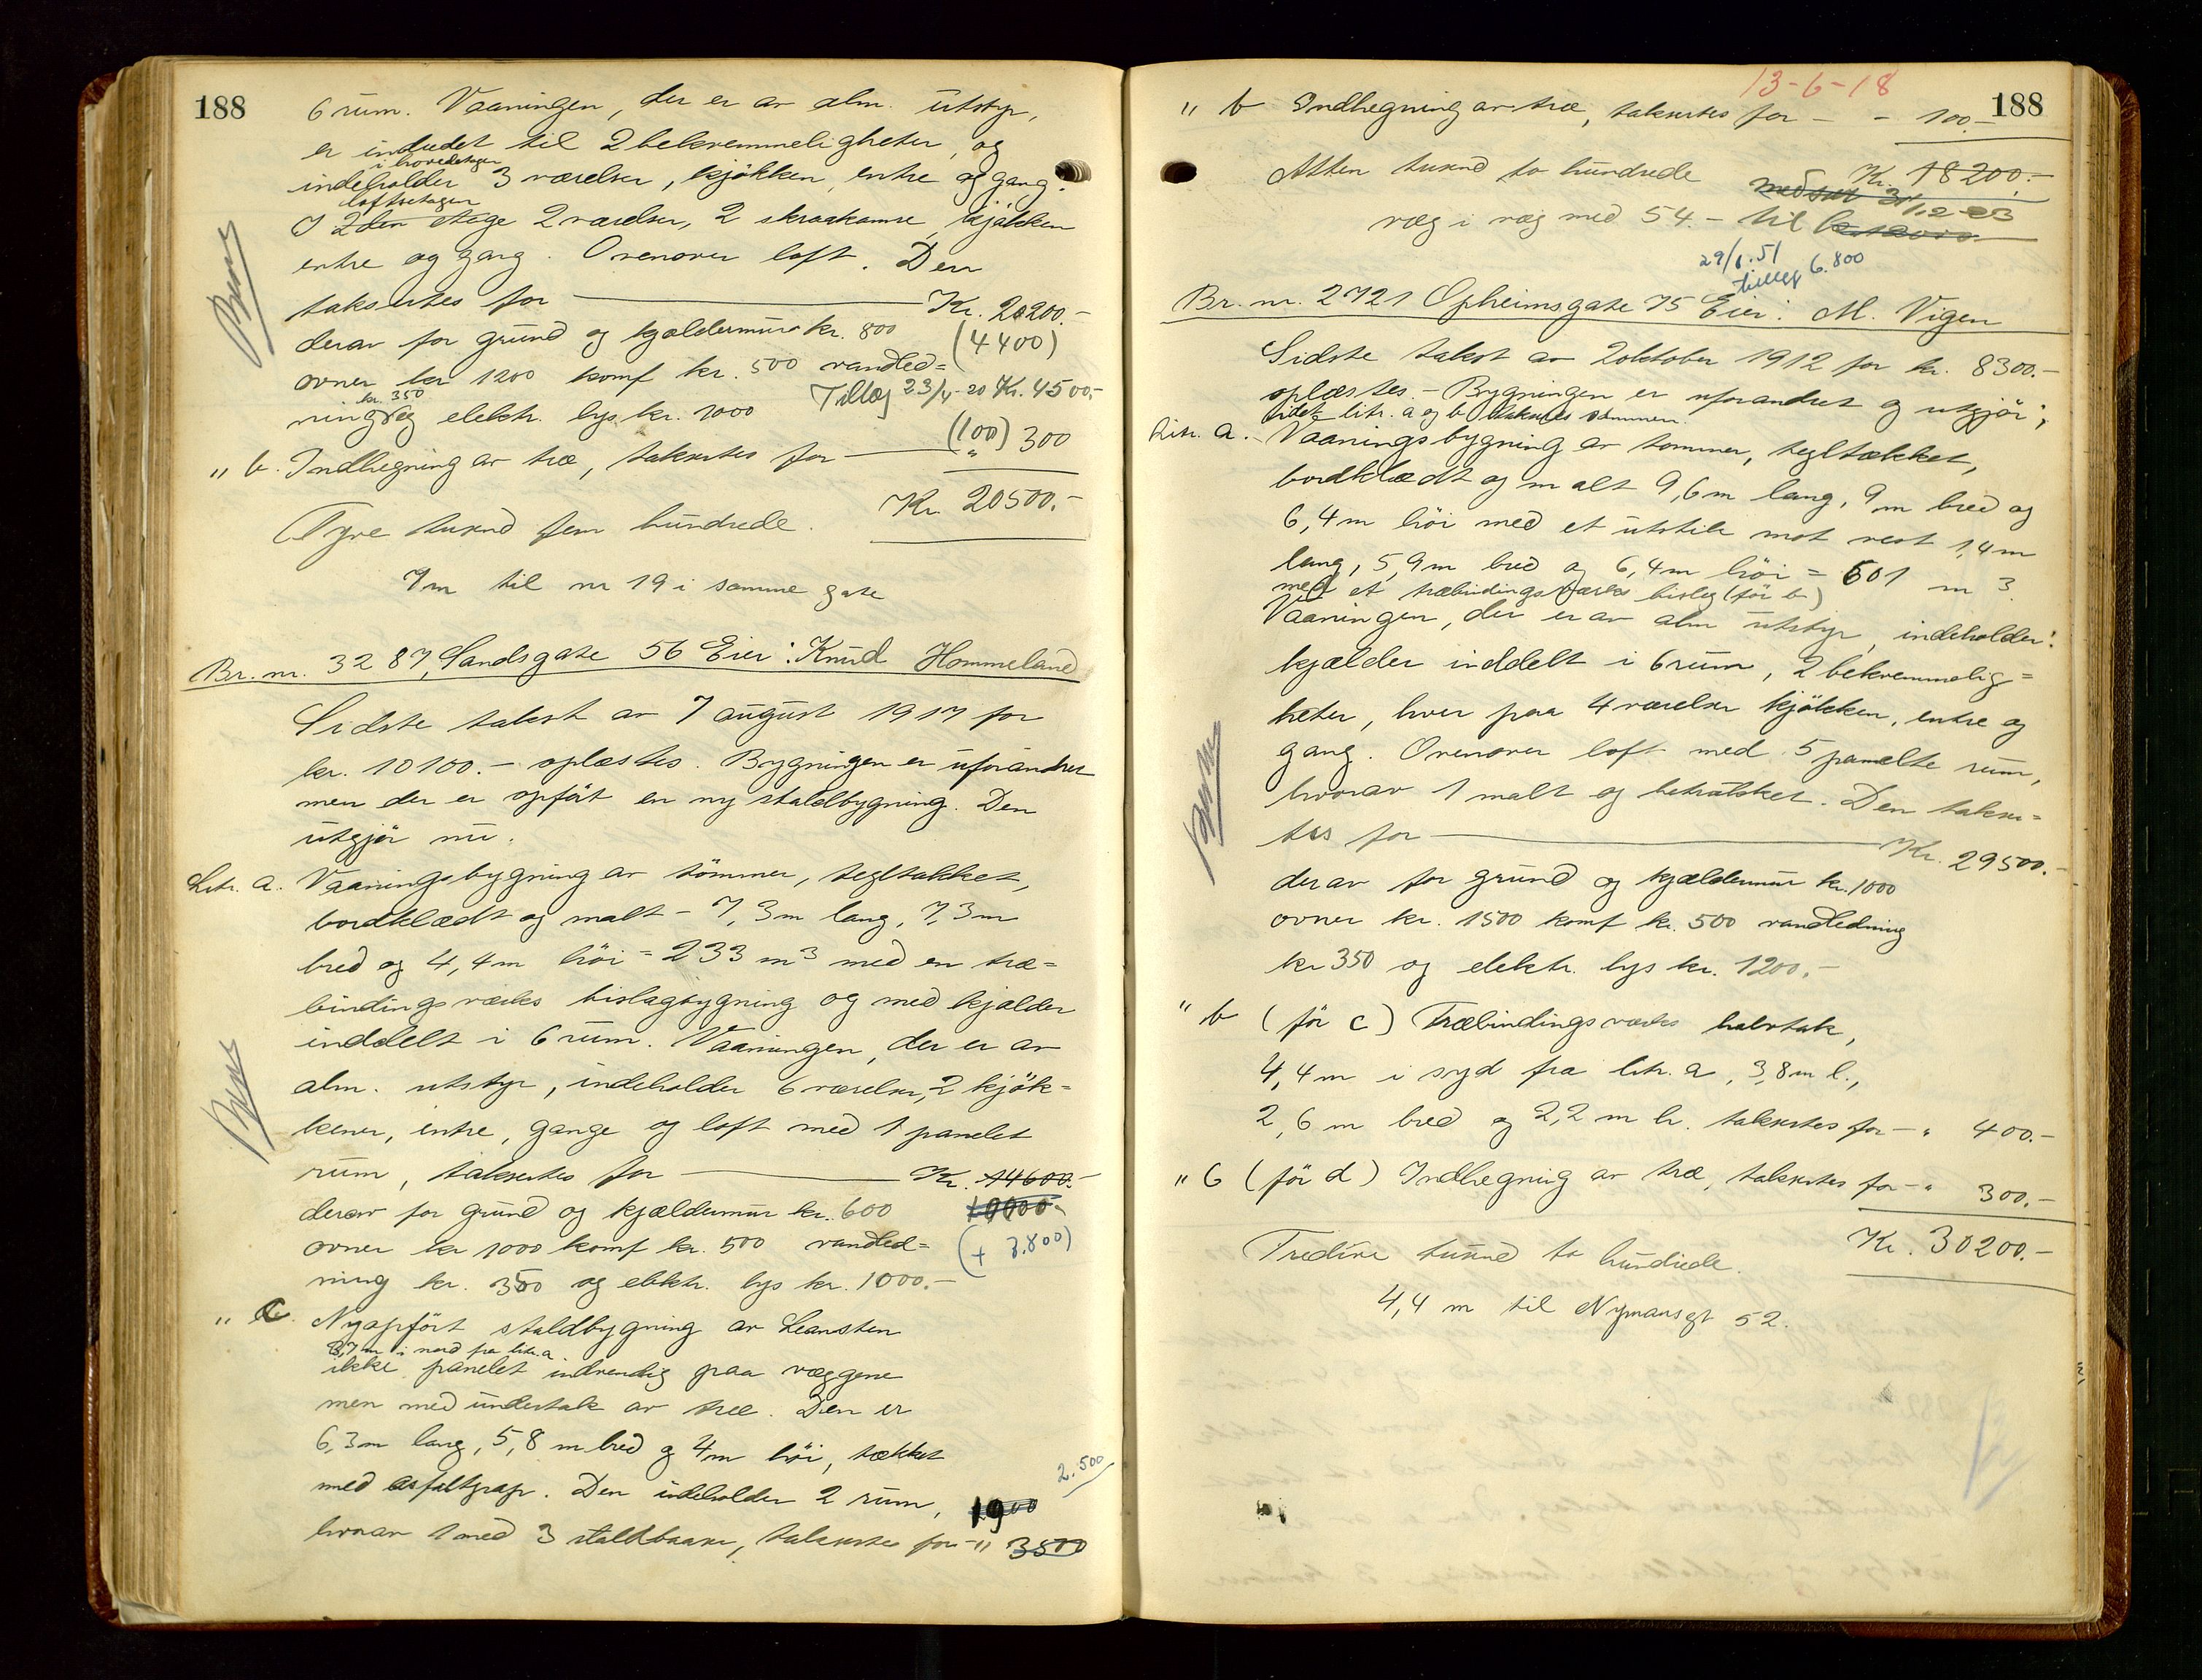 188
6 rum. Vaaningen, der er av alm. utstyr,
er indredet til 2 bekvemmeligheter, og
i hovedetagen
indeholder 3 værelser, kjøkken, entre og gang.
loftsetagen
I 2den etage 2 værelser, 2 skraakamre, kjøkken
entre og gang. Ovenover loft. Den
taksertes for Kr. 20200.-
derav for grund og kjældermur kr. 800 (4400)
ovner kr 1200 komf kr. 500 vandled=
kr. 350
ning og elektr. lys kr. 1000 Tillæg 23/4-20 Kr. 4500.-
(100)
" b. Indhegning av træ, taksertes for " 300
Kr 20500.-
Tyve tusend fem hundrede.
9m til nr 19 i samme gate
Br. nr. 3287, Sandsgate 56 Eier: Knud Hommeland
Sidste takst av 7 august 1917 for
kr. 10100.- oplæstes. Bygningen er uforandret
men der er opført en ny staldbygning. Den
utgjør nu:
Litr. a. Vaaningsbygning av tømmer, tegltækket,
bordklædt og malt - 7,3m lang, 7,3m
bred og 4,4m høi = 233 m3 med en træ=
bindingsværks bislagbygning og med kjælder
inddelt i 6 rum. Vaaningen, der er av
alm. utstyr, indeholder 6 værelser, 2 kjøk=
kener, entre, gange og loft med 1 panelet
rum, taksertes for Kr. 14600.-
derav for grund og kjældermur kr. 600 10000.-
ovner kr 1000 komf kr. 500 vandled= (+ 3.800)
ning kr. 350 og elektr. lys kr. 1000.-
" c. Nyopført staldbygning av Leansten
8,7m i nord fra litr. a
ikke panelet indvendig paa væggene
men med undertak av træ. Den er
6,3m lang, 5,8 m bred og 4m høi, tækket
2.500
med asfaltpap. Den indeholder 2 rum, 1900
hvorav 1 med 3 staldbaase, taksertes for " 3500
13-6-18
188
" b Indhegning av træ, taksertes for - - 100.-
Atten tusend to hundrede Kr. 18200.-
31/12-23
væg i væg med 54. - til
29/1.51
tillegg 6.800
Br. nr. 2721 Opheimsgate 75 Eier: M. Vigen
Sidste takst av 2 oktober 1912 for kr. 8300.-
oplæstes. - Bygningen er uforandret og utgjør;
idet litr. a og b takseres sammen.
Litr. a. - Vaaningsbygning av tømmer, tegltækket,
bordklædt og malt 9,6m lang, 9m bred og
6,4m høi med et utstik mot vest 1,4m
lang, 5,9m bred og 6,4m høi = 601 m 3.
med et træbindingsværks bislag (før b)
Vaaningen, der er av alm utstyr, indeholder:
kjælder inddelt i 6 rum, 2 bekvemmelig=
heter, hver paa 4 værelser kjøkken, entre og
gang. Ovenover loft med 5 panelte rum,
hvorav 1 malt og betrukket. Den takser=
tes for Kr. 29500.-
derav for grund og kjældermur kr. 1000
ovner kr. 1500 komf kr. 500 vandledning
kr 350 og elektr. lys kr. 1200.-
" b (før c) Træbindingsværks halvtak,
4,4m i syd fra litr. a, 3,8m l.,
2,6 m bred og 2,2 m h. taksertes for - " 400.-
" c (før d) Indhegning av træ, taksertes for - " 300.-
Kr. 30200.-
Tredive tusend to hundrede.
4,4 m til Nymansgt 52.